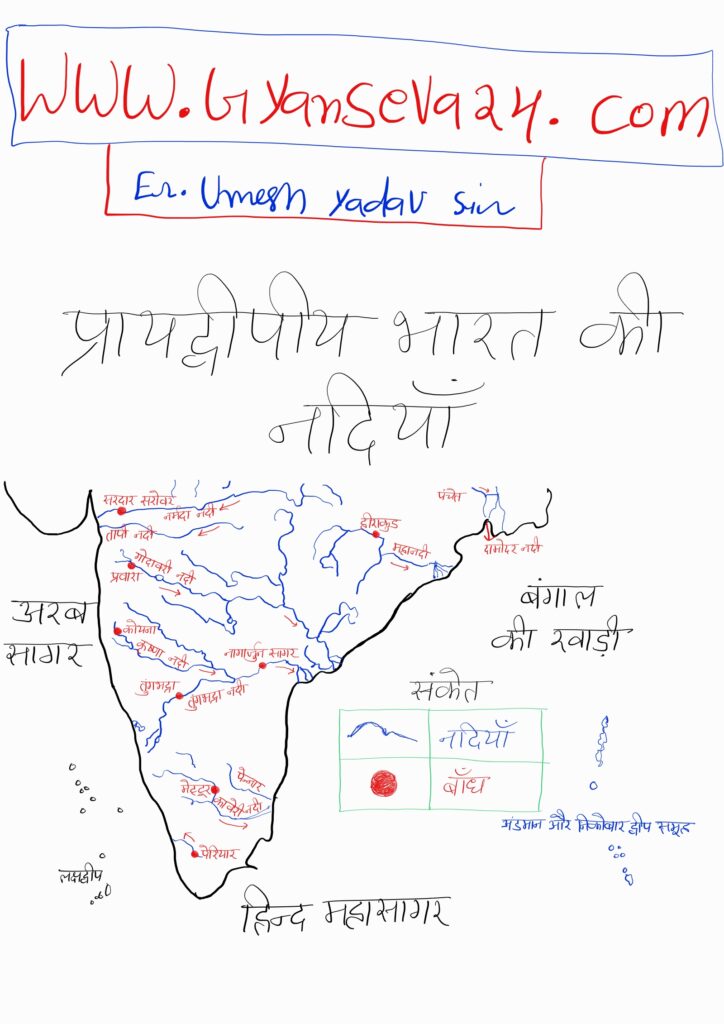 www.Gyanseva24.com
Er. Umesh Yadav Sir
प्रायद्वीपीय भारत की
नदियाँ
सरदार सरोवर
नर्मदा नदी
तापी नदी
गोदावरी नदी
प्रवारा
हीराकुड
महानदी
पंचेत
दामोदर नदी
अरब
सागर
बंगाल
की खाड़ी
कोयना
कृष्णा नदी
नागार्जुन सागर
तुंगभद्रा
तुंगभद्रा नदी
संकेत
नदियाँ
बाँध
पेन्नार
मेटटूर
कावेरी नदी
पेरियार
अंडमान और निकोबार द्वीप समूह
लक्षद्वीप
हिन्द महासागर